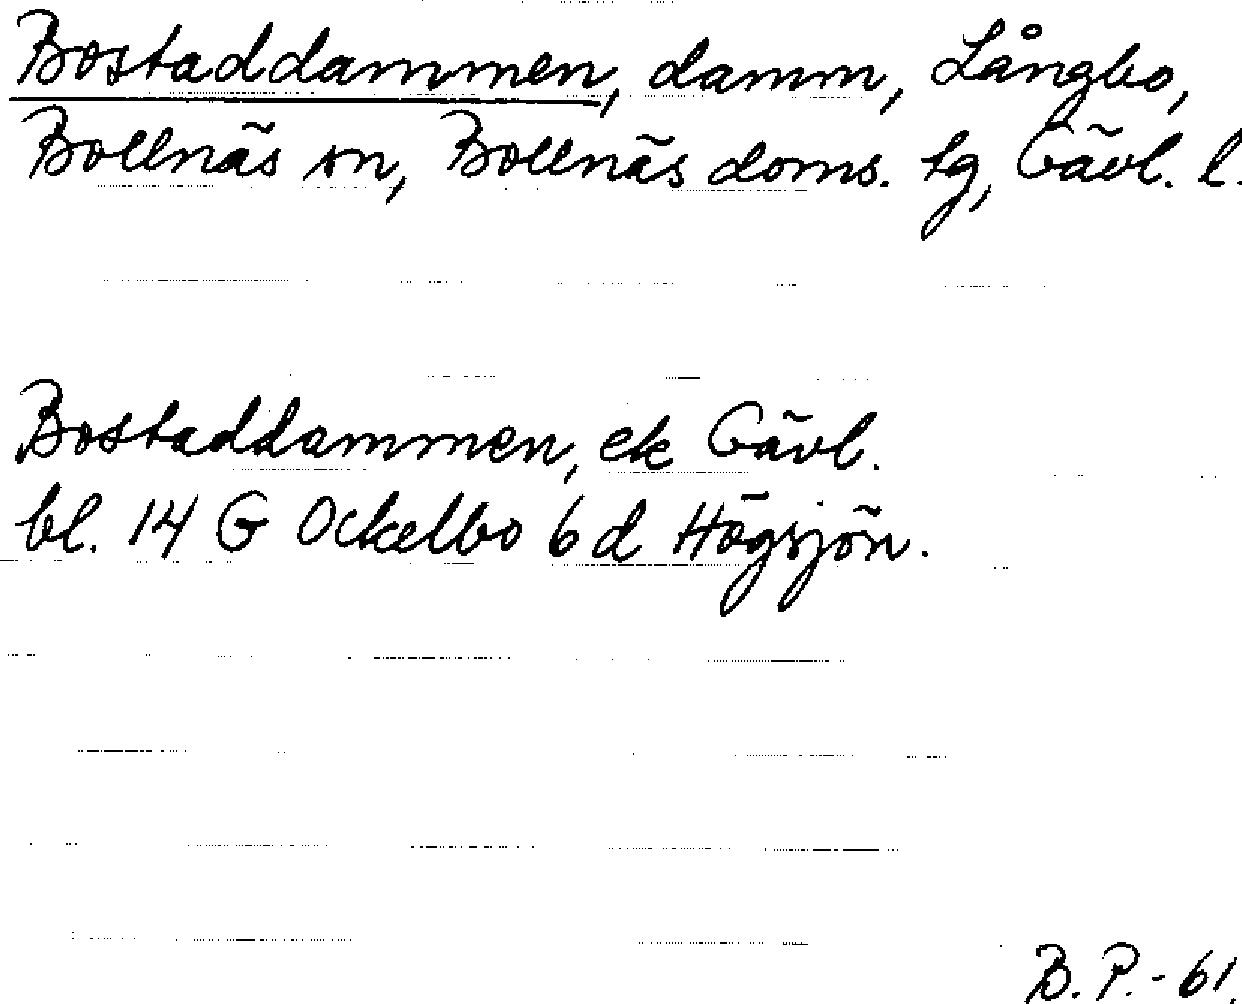 Bostaddammen, damm, Långbo,
Bollnäs sn, Bollnäs doms. tg, Gävl. l.
Bostaddammen, ek Gävl.
bl. 14 G Ockelbo 6 d Högsjön.
B. P. - 61.